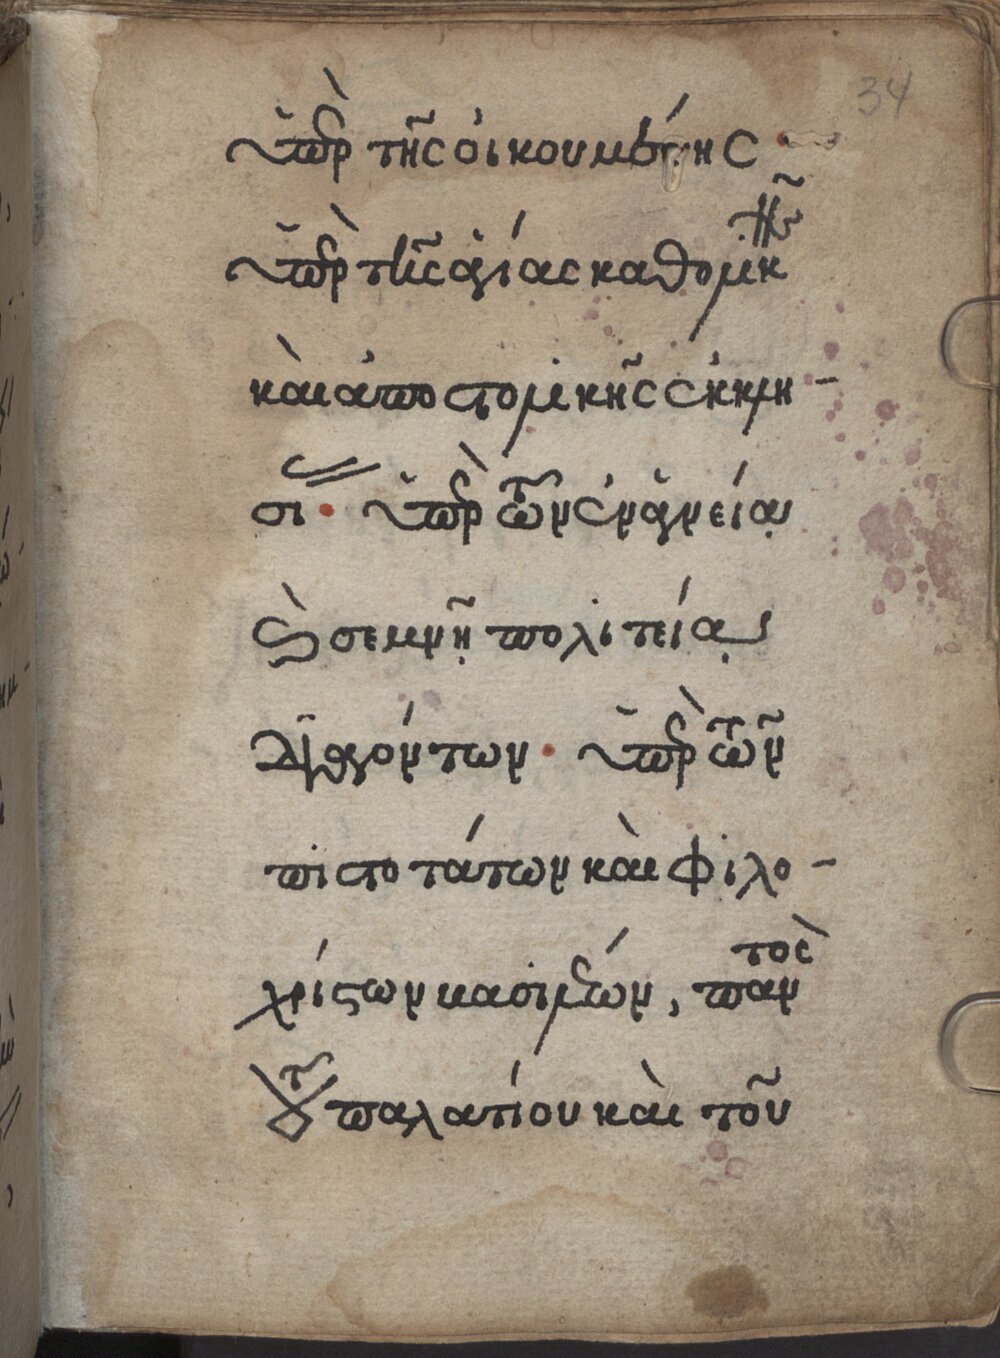 34
ὑπὲρ τῆς οἰκουμένης ·
ὑπὲρ τῆς ἁγίας καθολικῆς
καὶ ἀποστολικῆς ἐκκλη-
σι · ὑπὲρ τῶν ἐν ἁγνείᾳ
καὶ σεμνῇ πολιτείᾳ
διαγόντων · ὑπὲρ τῶν
πιστοτάτων καὶ φιλο-
χρίστων βασιλέων, παντὸς
τοῦ παλατίου καὶ τοῦ